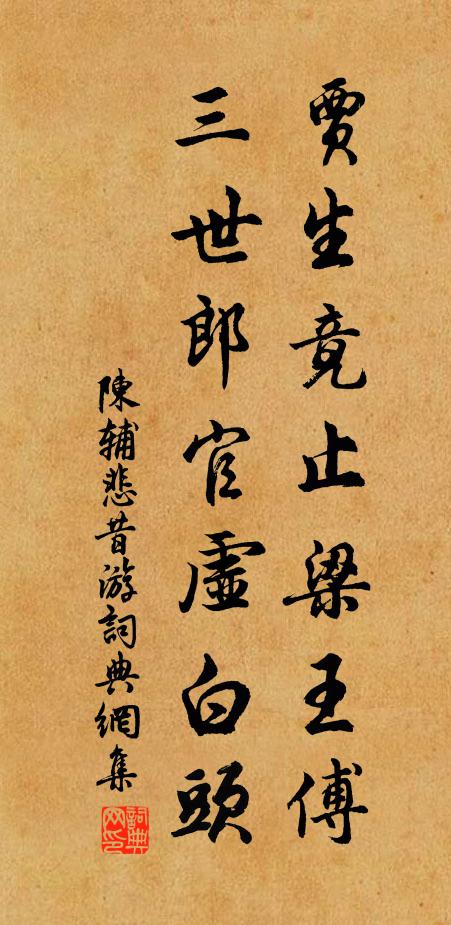 賈生竟止梁王傅
三世郎官虛白頭
陳辅悲昔游詞典網集
詞典网印